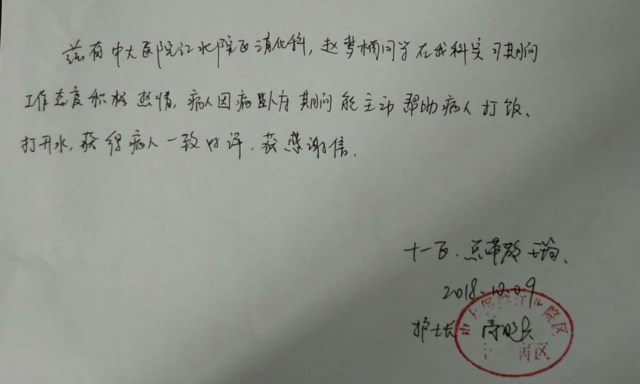 兹有中大医院江北院区消化科,赵梦楠同学在我科实习期间
工作态度积极热情,病人因病卧床期间能主动帮助病人打饭、
打开水,获得病人一致好评,获感谢信.
十一区.总带教
2018.12.09
护士长
院区
病区